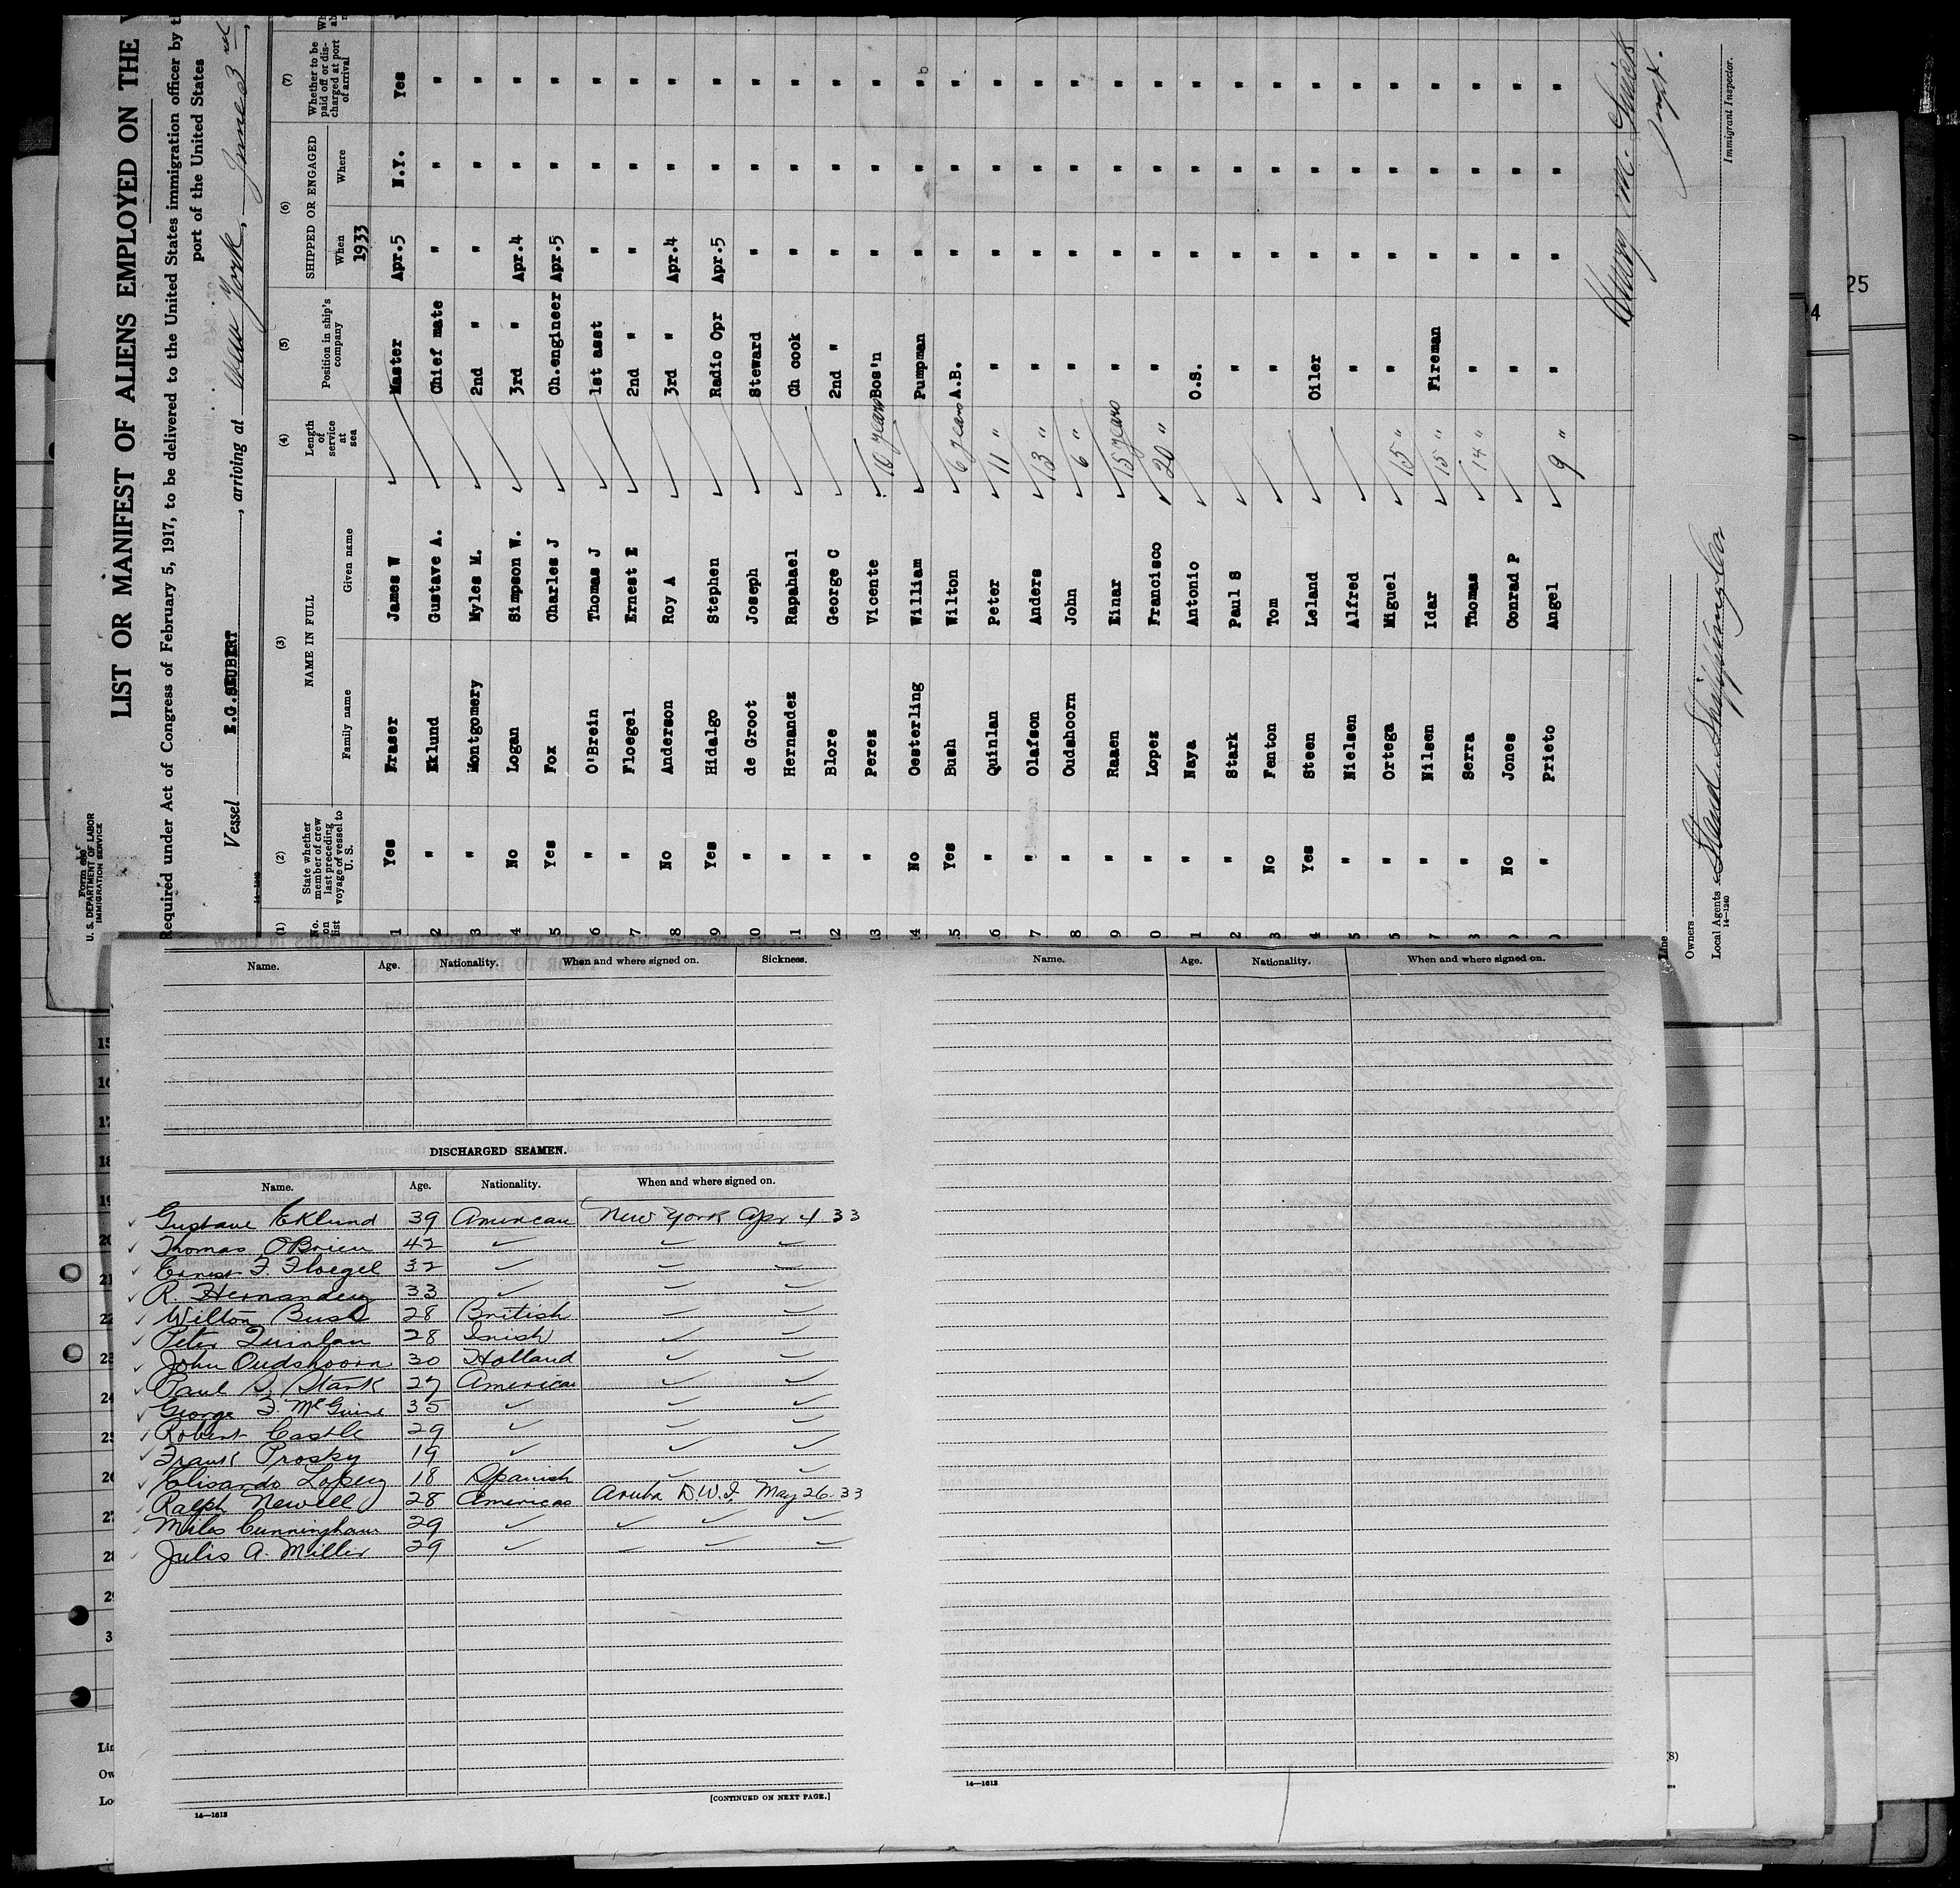 Form 680
U. S. DEPARTMENT OF LABOR
IMMIGRATION SERVICE
LIST OR MANIFEST OF ALIENS EMPLOYED ON THE
Required under Act of Congress of February 5, 1917, to be delivered to the United States immigration officer by
port of the United States
Vessel E.G.SEUBERT, arriving at New York, June 3rd
14—1240
(1) (2) (3) (4) (5) (6) (7)
No. on list State whether member of crew last preceding voyage of vessel to U. S. NAME IN FULL Family name Given name Length of service at sea Position in ship's company SHIPPED OR ENGAGED When Where Whether to be paid off or discharged at port of arrival
1933
1 Yes Fraser James W Master Apr.5 N.Y. Yes
2 " Eklund Gustave A. Chief mate " " "
3 " Montgomery Myles M. 2nd " " " "
4 No Logan Simpson W. 3rd " Apr.4 " "
5 Yes Fox Charles J Ch.engineer Apr.5 " "
6 " O'Brein Thomas J 1st asst " " "
7 " Floegel Ernest E 2nd " " " "
8 No Anderson Roy A 3rd " Apr.4 " "
9 Yes Hidalgo Stephen Radio Opr Apr.5 " "
10 " de Groot Joseph Steward " " "
11 " Hernandez Raphael Ch cook " " "
12 " Blore George C 2nd " " " "
13 " Perez Vicente 10 years Bos'n " " "
14 No Oesterling William Pumpman " " "
15 Yes Bush Wilton 6 years A.B. " " "
6 " Quinlan Peter 11 " " " " "
7 " Olafson Anders 13 " " " " "
8 " Oudshoorn John 6 " " " " "
9 " Raaen Einar 15 years " " " "
0 " Lopez Francisco 20 " " " " "
1 " Naya Antonio O.S. " " "
2 " Stark Paul S " " " "
3 No Fenton Tom " " " "
4 Yes Steen Leland Oiler " " "
5 " Nielsen Alfred " " " "
6 " Ortega Miguel 15 " " " " "
7 " Nilsen Idar 15 " Fireman " " "
8 " Serra Thomas 14 " " " " "
9 No Jones Conrad P " " " "
0 " Prieto Angel 9 " " " " "
Line
Owners
Local Agents
14—1240
Immigrant Inspector.
Name. Age. Nationality. When and where signed on. Sickness.
DISCHARGED SEAMEN.
Name. Age. Nationality. When and where signed on.
Gustave Eklund 39 American New York Apr 4 33
Thomas O'Brien 42
Ernest F. Floegel 32
R. Hernandez 33
Wilton Bush 28 British
Peter Quinlan 28 Irish
John Oudshoorn 30 Holland
Paul S. Stark 27 American
George F. McGuire 35
Robert Castle 29
Frank Prosky 19
Elisardo Lopez 18 Spanish
Ralph Newell 28 American Aruba D.W.I. May 26 33
Miles Cunningham 29
Julis A. Miller 29
14—1613
[CONTINUED ON NEXT PAGE.]
Name. Age. Nationality. When and where signed on.
14—1613
15
16
17
18
19
20
21
22
23
24
25
26
27
28
29
3
Lin
Ow
Lo
24
25
(8)